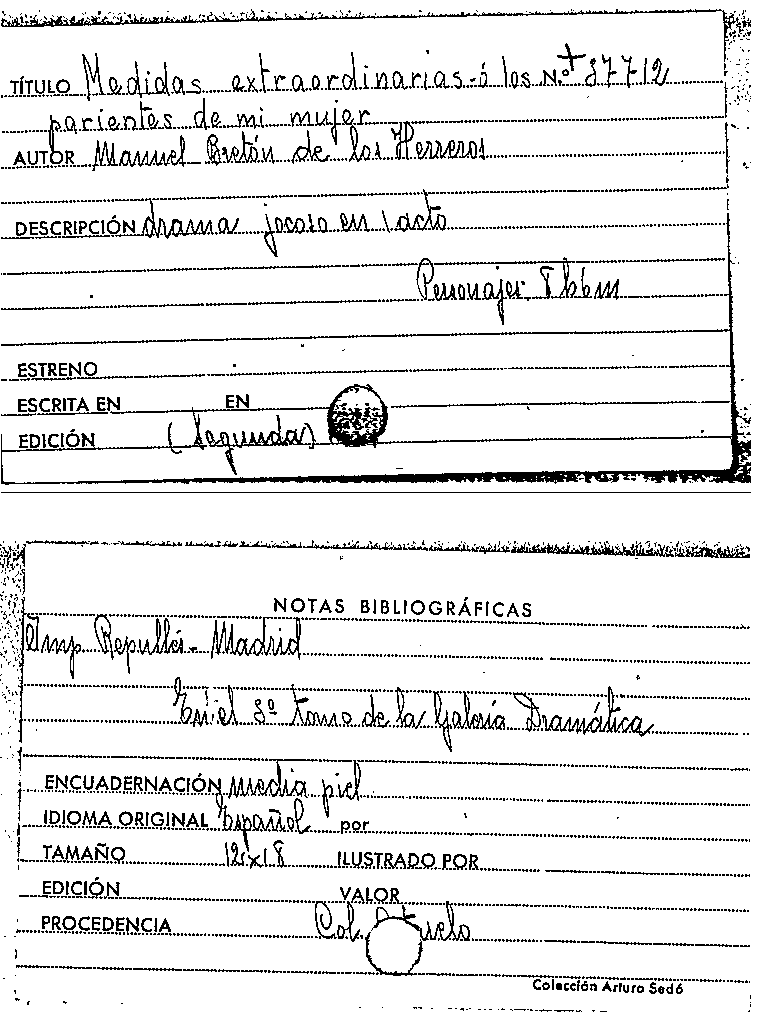 TÍTULO Medidas extraordinarias ó los N.º + 37712
parientes de mi mujer
AUTOR Manuel Bretón de los Herreros
DESCRIPCIÓN drama jocoso en 1 acto
Personajes:
ESTRENO
ESCRITA EN EN
EDICIÓN (Segunda)
NOTAS BIBLIOGRÁFICAS
Imp. Repullés - Madrid
En el 8º tomo de la Galería Dramática
ENCUADERNACIÓN media piel
IDIOMA ORIGINAL Español por
TAMAÑO 12x18 ILUSTRADO POR
EDICIÓN VALOR
PROCEDENCIA Col.
Colección Arturo Sedó